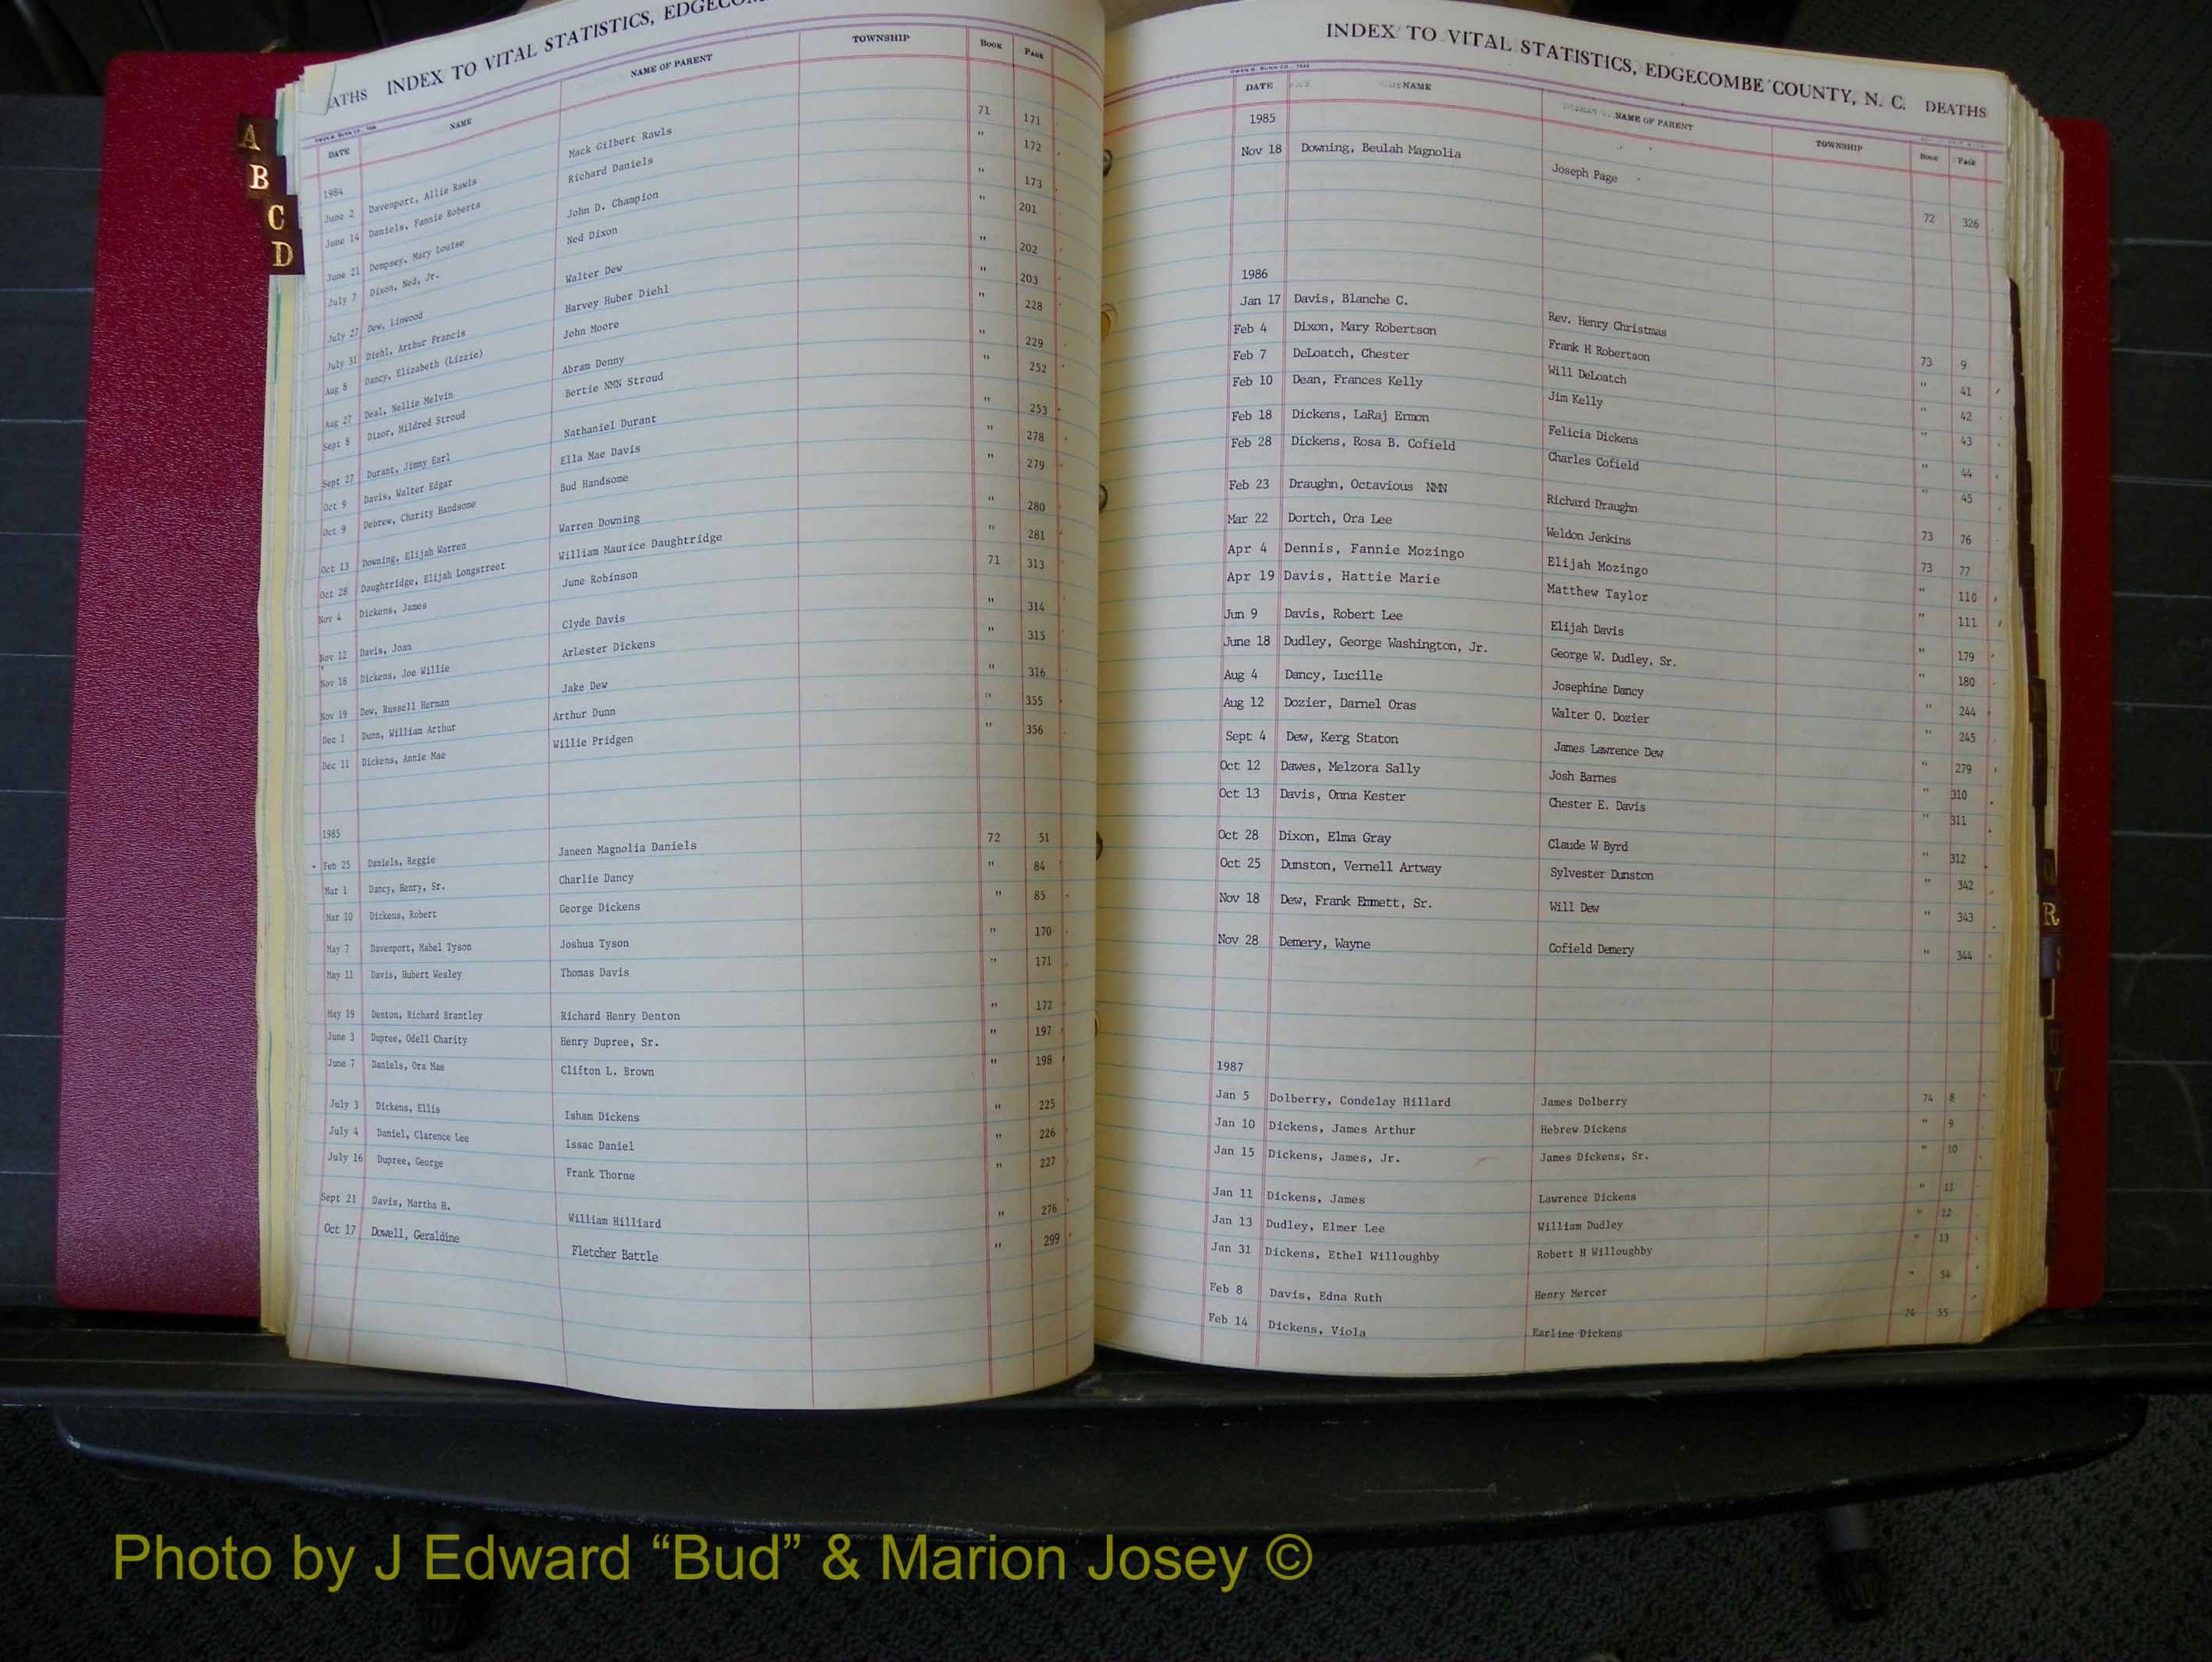 A
B
C
D
ATHS INDEX TO VITAL STATISTICS, EDGECOM
DATE NAME NAME OF PARENT TOWNSHIP BOOK PAGE
1984
June 2 Davenport, Allie Rawls Mack Gilbert Rawls 71 171
June 14 Daniels, Fannie Roberta Richard Daniels " 172
June 21 Dempsey, Mary Louise John D. Champion " 173
July 7 Dixon, Ned, Jr. Ned Dixon " 201
July 27 Dew, Linwood Walter Dew " 202
July 31 Diehl, Arthur Francis Harvey Huber Diehl " 203
Aug 8 Dancy, Elizabeth (Lizzie) John Moore " 228
Aug 27 Deal, Nellie Melvin Abram Denny " 229
Sept 8 Dizor, Mildred Stroud Bertie NMN Stroud " 252
Sept 27 Durant, Jimmy Earl Nathaniel Durant " 253
Oct 9 Davis, Walter Edgar Ella Mae Davis " 278
Oct 9 Debrew, Charity Handsome Bud Handsome " 279
Oct 13 Downing, Elijah Warren Warren Downing " 280
Oct 28 Daughtridge, Elijah Longstreet William Maurice Daughtridge " 281
Nov 4 Dickens, James June Robinson 71 313
Nov 12 Davis, Joan Clyde Davis " 314
Nov 18 Dickens, Joe Willie ArLester Dickens " 315
Nov 19 Dew, Russell Herman Jake Dew " 316
Dec 1 Dunn, William Arthur Arthur Dunn " 355
Dec 11 Dickens, Annie Mae Willie Pridgen " 356
1985
- Feb 25 Daniels, Reggie Janeen Magnolia Daniels 72 51
Mar 1 Dancy, Henry, Sr. Charlie Dancy " 84
Mar 10 Dickens, Robert George Dickens " 85
May 7 Davenport, Mabel Tyson Joshua Tyson " 170
May 11 Davis, Hubert Wesley Thomas Davis " 171
May 19 Denton, Richard Brantley Richard Henry Denton " 172
June 3 Dupree, Odell Charity Henry Dupree, Sr. " 197
June 7 Daniels, Ora Mae Clifton L. Brown " 198
July 3 Dickens, Ellis Isham Dickens " 225
July 4 Daniel, Clarence Lee Issac Daniel " 226
July 16 Dupree, George Frank Thorne " 227
Sept 21 Davis, Martha H. William Hilliard " 276
Oct 17 Dowell, Geraldine Fletcher Battle " 299
INDEX TO VITAL STATISTICS, EDGECOMBE COUNTY, N. C. DEATHS
DATE NAME NAME OF PARENT TOWNSHIP BOOK PAGE
1985
Nov 18 Downing, Beulah Magnolia Joseph Page 72 326
1986
Jan 17 Davis, Blanche C. Rev. Henry Christmas 73 9
Feb 4 Dixon, Mary Robertson Frank H Robertson " 41
Feb 7 DeLoatch, Chester Will DeLoatch " 42
Feb 10 Dean, Frances Kelly Jim Kelly " 43
Feb 18 Dickens, LaRaj Ermon Felicia Dickens " 44
Feb 28 Dickens, Rosa B. Cofield Charles Cofield " 45
Feb 23 Draughn, Octavious NMN Richard Draughn 73 76
Mar 22 Dortch, Ora Lee Weldon Jenkins 73 77
Apr 4 Dennis, Fannie Mozingo Elijah Mozingo " 110
Apr 19 Davis, Hattie Marie Matthew Taylor " 111
Jun 9 Davis, Robert Lee Elijah Davis " 179
June 18 Dudley, George Washington, Jr. George W. Dudley, Sr. " 180
Aug 4 Dancy, Lucille Josephine Dancy " 244
Aug 12 Dozier, Darnel Oras Walter O. Dozier " 245
Sept 4 Dew, Kerg Staton James Lawrence Dew " 279
Oct 12 Dawes, Melzora Sally Josh Barnes " 310
Oct 13 Davis, Onna Kester Chester E. Davis " 311
Oct 28 Dixon, Elma Gray Claude W Byrd " 312
Oct 25 Dunston, Vernell Artway Sylvester Dunston " 342
Nov 18 Dew, Frank Emmett, Sr. Will Dew " 343
Nov 28 Demery, Wayne Cofield Demery " 344
1987
Jan 5 Dolberry, Condelay Hillard James Dolberry 74 8
Jan 10 Dickens, James Arthur Hebrew Dickens " 9
Jan 15 Dickens, James, Jr. James Dickens, Sr. " 10
Jan 11 Dickens, James Lawrence Dickens " 11
Jan 13 Dudley, Elmer Lee William Dudley " 12
Jan 31 Dickens, Ethel Willoughby Robert H Willoughby " 13
Feb 8 Davis, Edna Ruth Henry Mercer " 54
Feb 14 Dickens, Viola Earline Dickens 74 55
R
Photo by J Edward “Bud” & Marion Josey ©